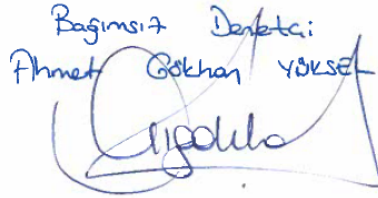 Bağımsız Denetçi
Ahmet Gökhan YÜKSEL